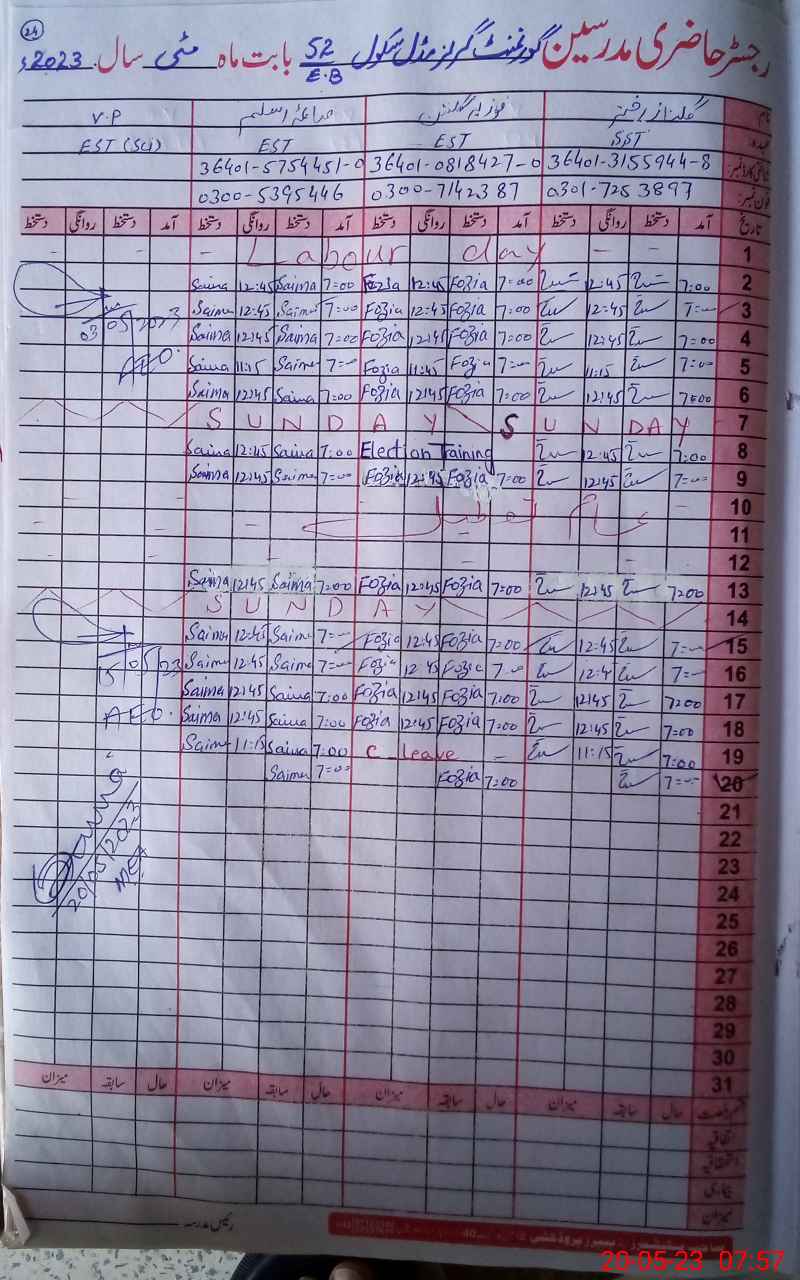 24
رجسٹر حاضری مدرسین گورنمنٹ گرلز مڈل سکول 52/E.B بابت ماہ مئی سال 2023ء
نام گلناز اختر فوزیہ صائمہ اسلم V.P
عہدہ SST EST EST EST (Sci)
شناختی کارڈ نمبر 36401-3155944-8 36401-0818427-0 36401-5754451-0
فون نمبر 0301-7253897 0300-7142387 0300-5395446
تاریخ آمد دستخط روانگی دستخط آمد دستخط روانگی دستخط آمد دستخط روانگی دستخط آمد دستخط روانگی دستخط
1 - - Labour day - -
2 7:00 12:45 7:00 Fozia 12:45 Fozia 7:00 Saima 12:45 Saima
3 7:00 12:45 7:00 Fozia 12:45 Fozia 7:00 Saima 12:45 Saima
03/05/2023
4 7:00 12:45 7:00 Fozia 12:45 Fozia 7:00 Saima 12:45 Saima
AEO.
5 7:00 11:15 7:00 Fozia 11:45 Fozia 7:00 Saima 11:15 Saima
6 7:00 12:45 7:00 Fozia 12:45 Fozia 7:00 Saima 12:45 Saima
7 SUNDAY SUNDAY
8 7:00 12:45 Election Training 7:00 Saima 12:45 Saima
9 7:00 12:45 7:00 Fozia 12:45 Fozia 7:00 Saima 12:45 Saima
10
عام تعطیل
11
12
13 7:00 12:45 7:00 Fozia 12:45 Fozia 7:00 Saima 12:45 Saima
14 SUNDAY
15 7:00 12:45 7:00 Fozia 12:45 Fozia 7:00 Saima 12:45 Saima
15/05/23
16 7:00 12:4 7:00 Fozia 12:45 Fozia 7:00 Saima 12:45 Saima
17 7:00 12:45 7:00 Fozia 12:45 Fozia 7:00 Saima 12:45 Saima
AEO.
18 7:00 12:45 7:00 Fozia 12:45 Fozia 7:00 Saima 12:45 Saima
19 7:00 11:15 - C leave 7:00 Saima 11:15 Saima
20 7:00 7:00 Fozia 7:00 Saima
20/05/2023
MEA
21
22
23
24
25
26
27
28
29
30
31
حال سابقہ میزان حال سابقہ میزان حال سابقہ میزان حال سابقہ میزان
اتفاقیہ
استحقاقیہ
بیماری
میزان
رئیس مدرسہ
20-05-23 07:57